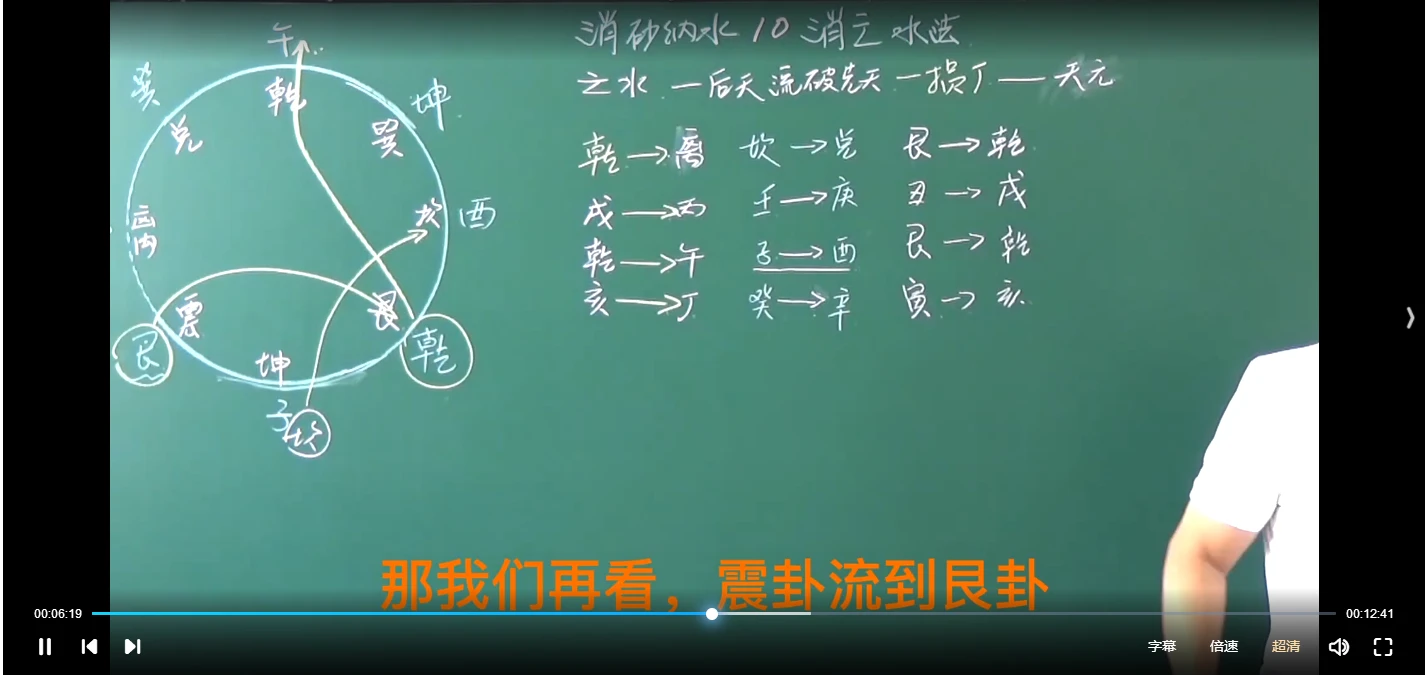 消砂纳水10消亡水法
亡水一后天流破先天一损丁一天元
乾→离 坎→兑 艮→乾
戌→丙 壬→庚 丑→戌
乾→午 子→酉 艮→乾
亥→丁 癸→辛 寅→亥
午
乾
巽
坤
兑
巽
坎
酉
离
震
艮
艮
坤
乾
子
坎
那我们再看，震卦流到艮卦
00:06:19
00:12:41
字幕 倍速 超清